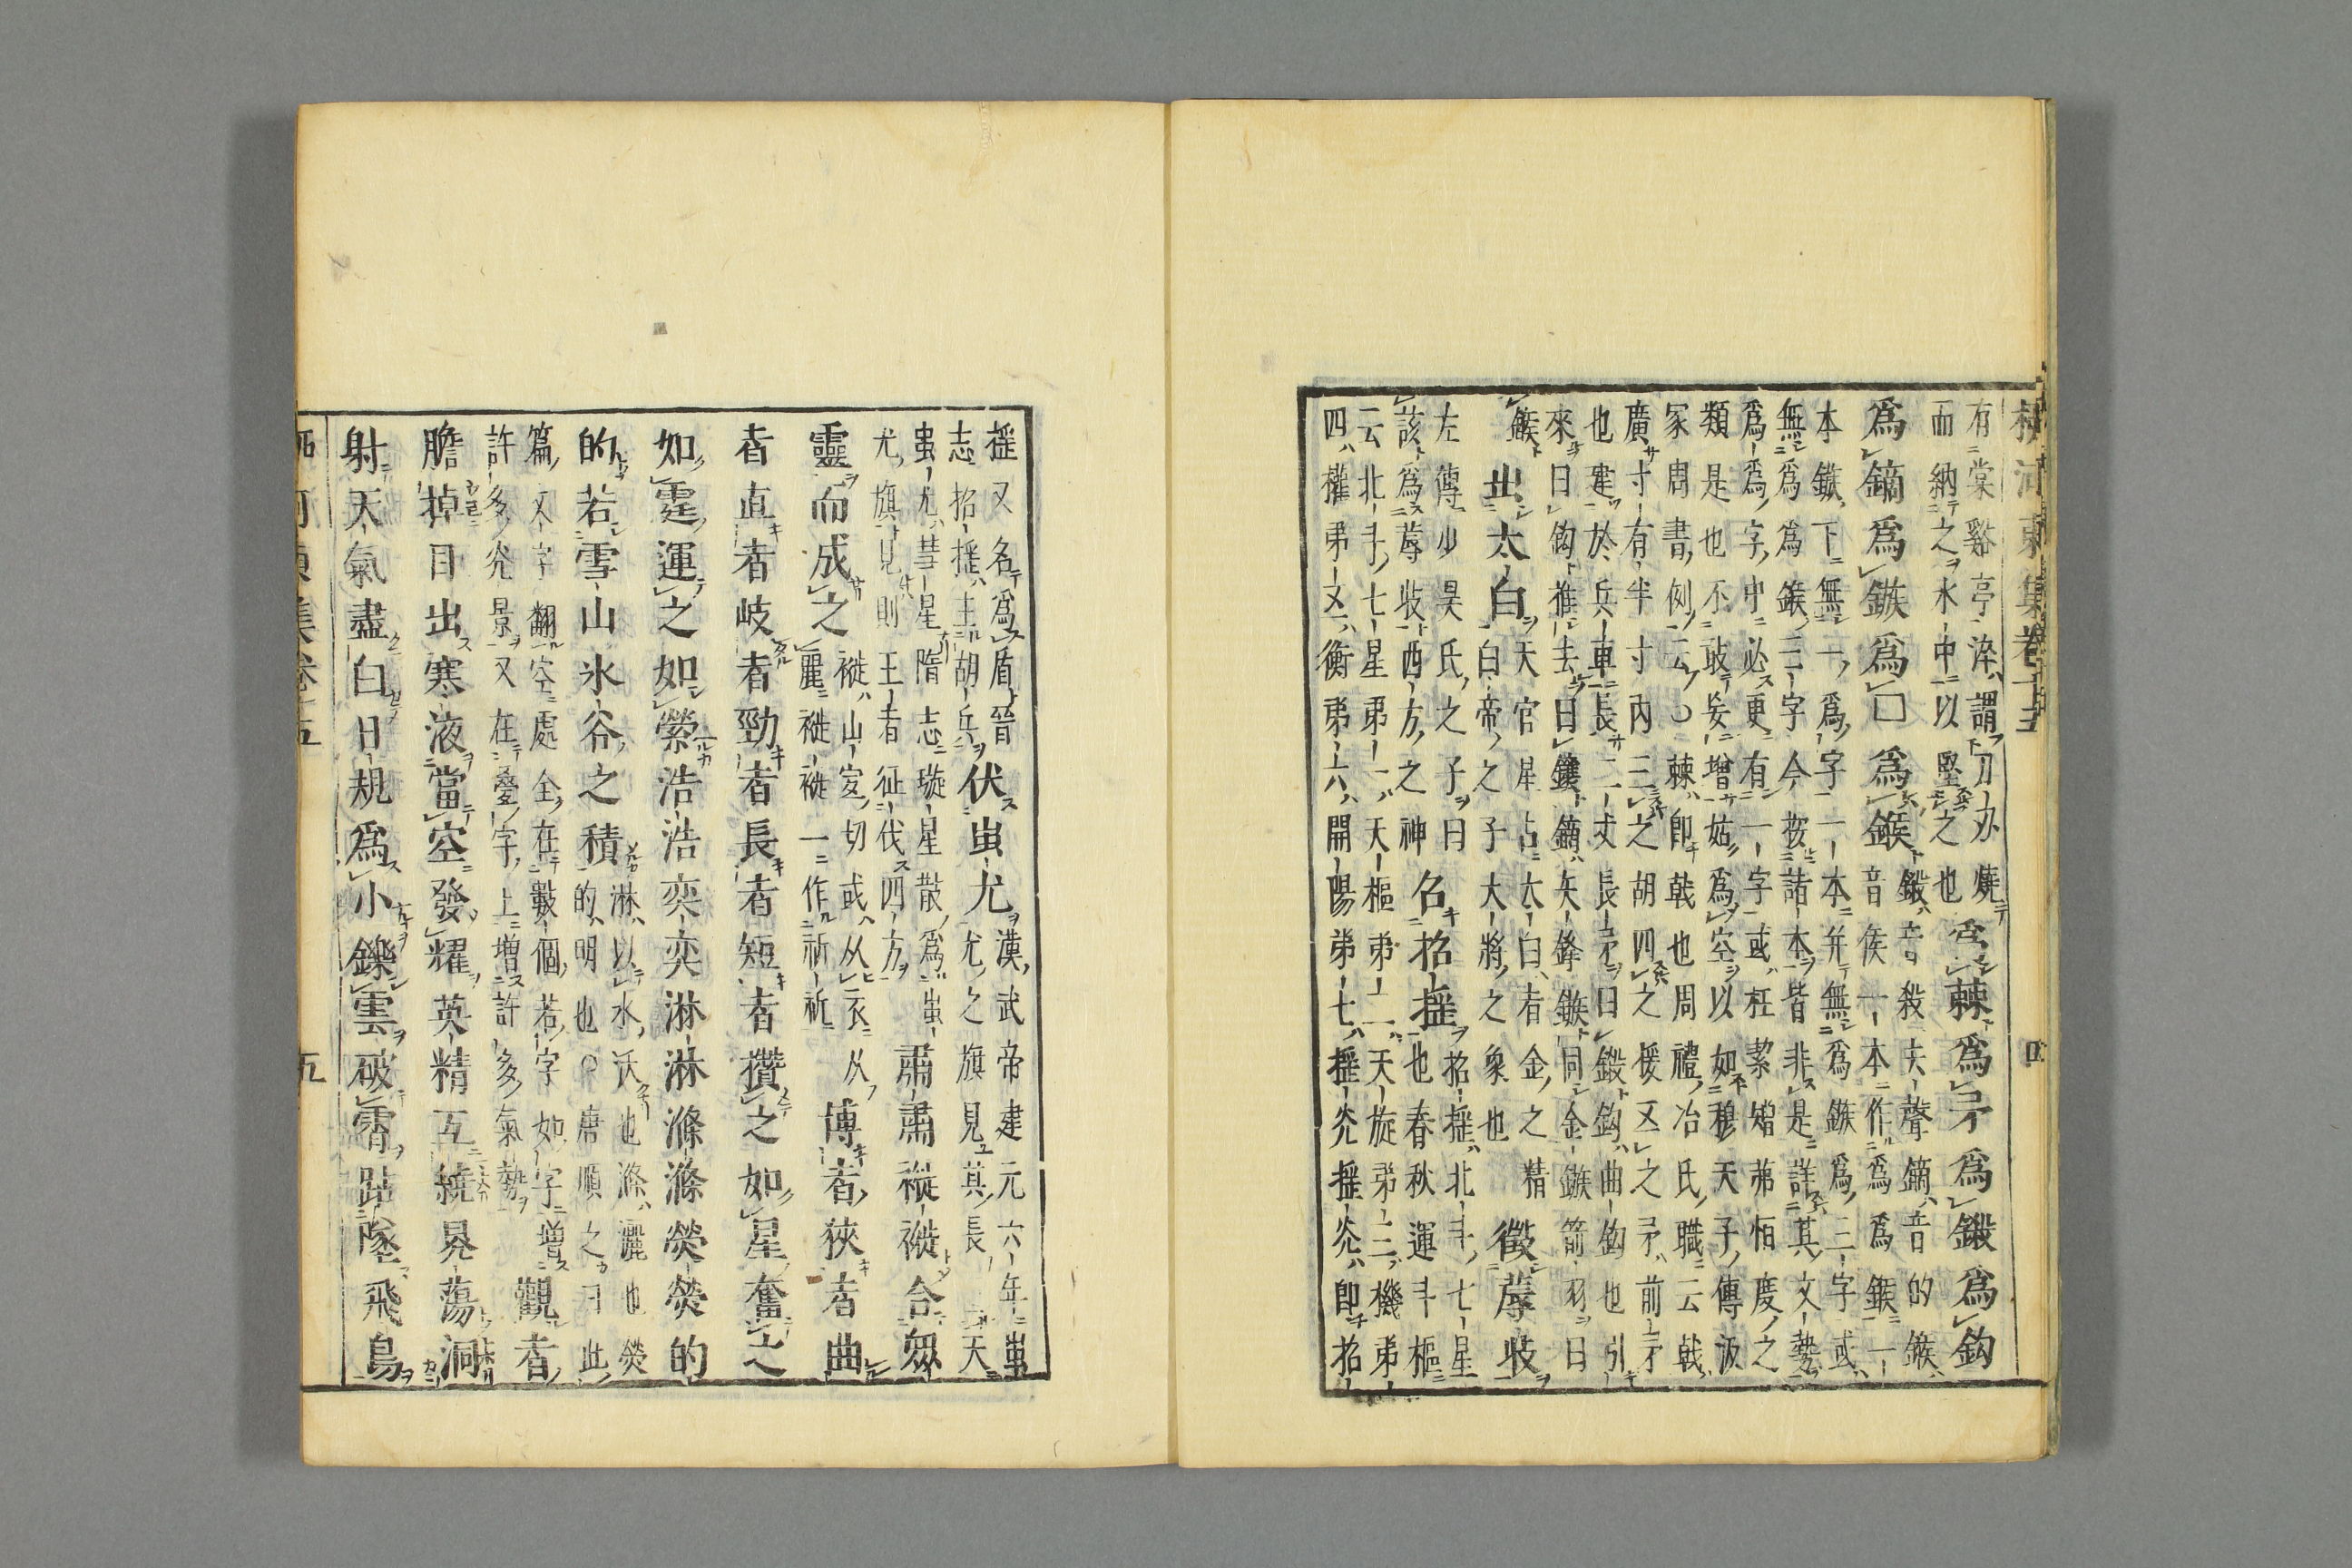 柳河東集卷十五 四
有棠谿亭淬謂刀刃燒
而納之水中以堅之也
爲棘爲矛爲鎩爲鈎
爲鏑爲鏃爲□爲鍭
鎩音殺夫聲鏑音的鍭
音侯一本作爲爲鍭一
本鏃下無一爲字一本并無爲鏃爲三字或
無爲爲鍭三字今按諸本皆非是詳其文勢
爲爲字中必更有一字或枉絜矰茀恒之
類是也不敢妄增姑爲空以如穆天子傳汲
冢周書例云○棘即戟也周禮冶氏職云戟
廣寸有半寸內三之胡四之援五之矛前上矛
也建於兵車長二丈長矛曰鎩鈎曲鈎也引
來曰鈎推去曰鑲鏑矢鋒鏃同金鏃箭羽曰
鍭
出太白
天官星占太白者金之精
白帝之子大將之象也
徵蓐收
左傳少昊氏之子曰
該爲蓐收西方之神
名招搖
招搖北斗七星
也春秋運斗樞
云北斗七星第一天樞第二天旋第三機第
四權第五衡第六開陽第七搖光搖光即招
搖又名爲盾晉
志招搖主胡兵
伏蚩尤
漢武帝建元六年蚩
尤之旗見其長天
蚩尤彗星隋志璇星散爲蚩
尤旗見則王者征伐四方
肅肅褷褷合衆
靈而成之
褷山宜切或从衣从
麗褷褷一作祈祈
博者狹者曲
者直者岐者勁者長者短者攢之如星奮之
如霆運之如縈浩浩奕奕淋淋滌滌熒熒的
的若雪山氷谷之積
淋以水沃也滌灑也熒
的明也○唐順之曰此
篇又字翻空處全在數個若字如字增
許多光景又在疊字上增許多氣勢
觀者
膽掉目出寒液當空發耀英精互繞晃蕩洞
射天氣盡白日規爲小鑠雲破霄跕墜飛鳥
柳河東集卷十五 五